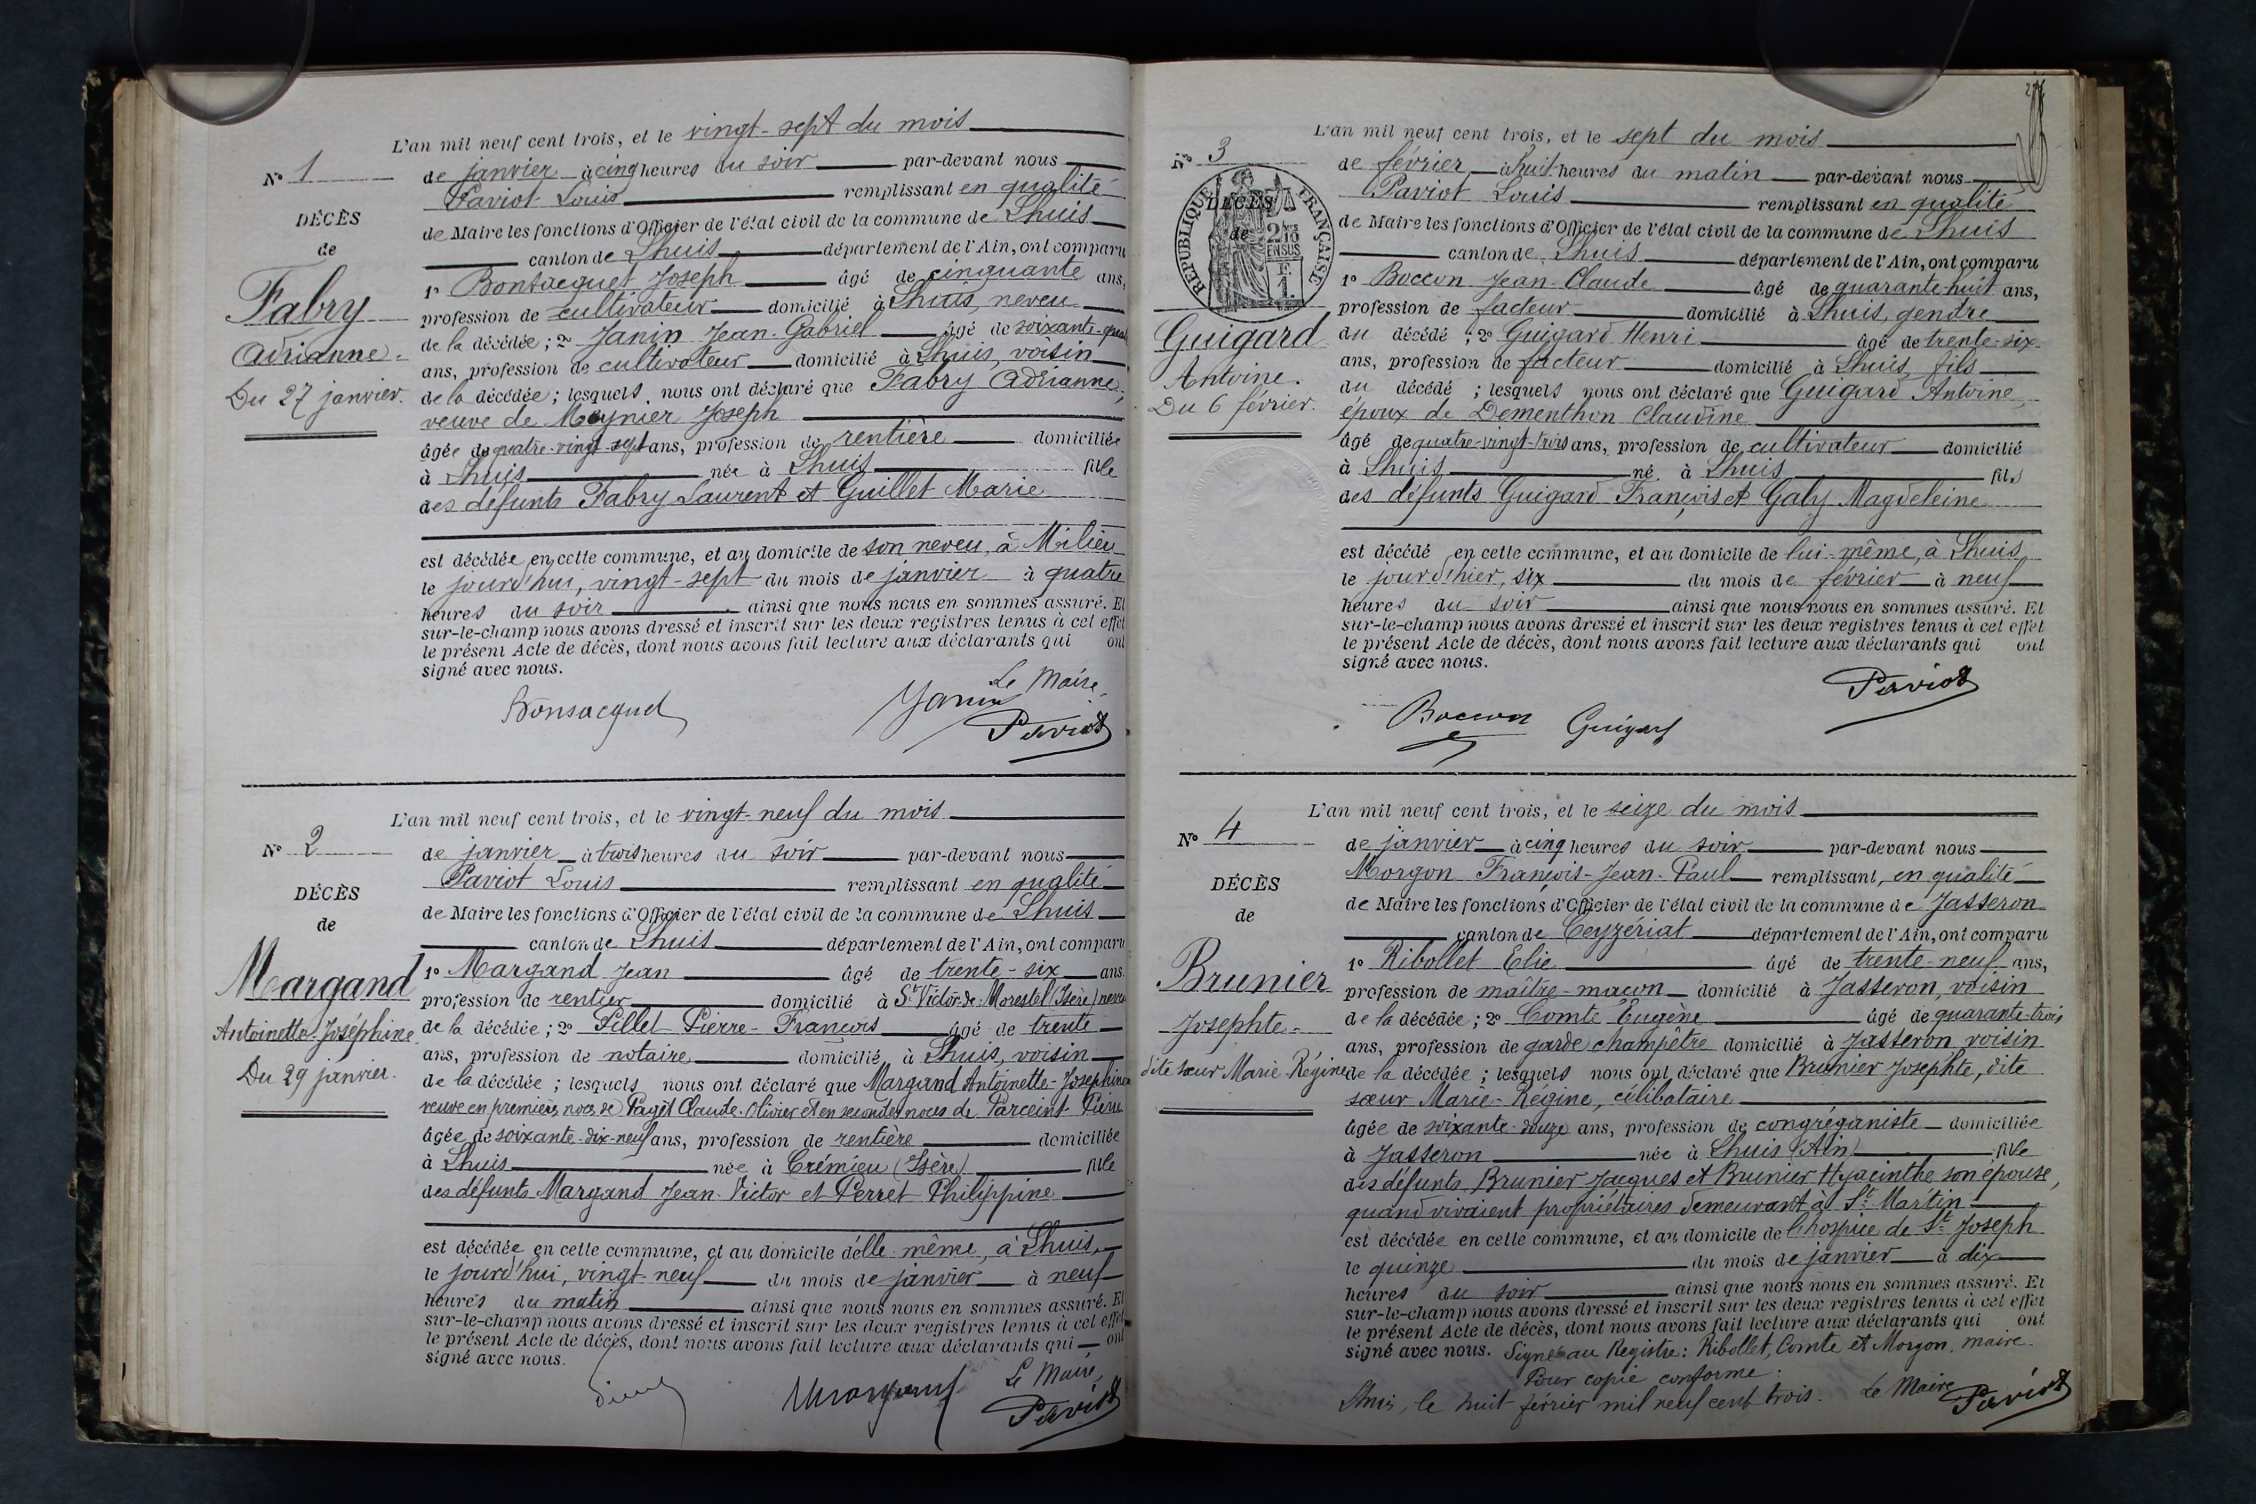 L'an mil neuf cent trois, et le vingt-sept du mois
N° 1
de janvier à cinq heures du soir par-devant nous
Paviot Louis remplissant en qualité
DÉCÈS
de Maire les fonctions d'Officier de l'état civil de la commune de Lhuis
de
canton de Lhuis département de l'Ain, ont comparu
Fabry
1° Bonsacquet Joseph âgé de cinquante ans,
profession de cultivateur domicilié à Lhuis, neveu
Adrianne
de la décédée ; 2° Janin Jean-Gabriel âgé de soixante-quatre
ans, profession de cultivateur domicilié à Lhuis, voisin
Du 27 janvier.
de la décédée ; lesquels nous ont déclaré que Fabry Adrianne,
veuve de Meynier Joseph
âgée de quatre-vingt-sept ans, profession de rentière domiciliée
à Lhuis née à Lhuis fille
des défunts Fabry Laurent et Guillet Marie
est décédée en cette commune, et au domicile de son neveu, à Milieu
le jourd'hui, vingt-sept du mois de janvier à quatre
heures du soir ainsi que nous nous en sommes assuré. Et
sur-le-champ nous avons dressé et inscrit sur les deux registres tenus à cet effet
le présent Acte de décès, dont nous avons fait lecture aux déclarants qui ont
signé avec nous.
Le Maire,
Bonsacquet Janin Paviot
L'an mil neuf cent trois, et le vingt-neuf du mois
N° 2
de janvier à trois heures du soir par-devant nous
Paviot Louis remplissant en qualité
DÉCÈS
de Maire les fonctions d'Officier de l'état civil de la commune de Lhuis
de
canton de Lhuis département de l'Ain, ont comparu
Margand
1° Margand Jean âgé de trente-six ans
profession de rentier domicilié à St Victor-de-Morestel (Isère) neveu
Antoinette-Joséphine
de la décédée ; 2° Pillet Pierre-François âgé de trente
ans, profession de notaire domicilié à Lhuis, voisin
Du 29 janvier.
de la décédée ; lesquels nous ont déclaré que Margand Antoinette-Joséphine
veuve en premières noces de Paget Claude-Olivier et en secondes noces de Parceint Pierre
âgée de soixante-dix-neuf ans, profession de rentière domiciliée
à Lhuis née à Crémieu (Isère) fille
des défunts Margand Jean-Victor et Perret Philippine
est décédée en cette commune, et au domicile d'elle-même, à Lhuis
le jourd'hui, vingt-neuf du mois de janvier à neuf
heures du matin ainsi que nous nous en sommes assuré. Et
sur-le-champ nous avons dressé et inscrit sur les deux registres tenus à cet effet
le présent Acte de décès, dont nous avons fait lecture aux déclarants qui ont
signé avec nous.
Le Maire,
Margand Paviot
L'an mil neuf cent trois, et le sept du mois
N° 3
de février à huit heures du matin par-devant nous
Paviot Louis remplissant en qualité
RÉPUBLIQUE FRANÇAISE
DÉCÈS
de
2/10 EN SUS
F. 1.
de Maire les fonctions d'Officier de l'état civil de la commune de Lhuis
canton de Lhuis département de l'Ain, ont comparu
1° Boccon Jean-Claude âgé de quarante-huit ans,
profession de facteur domicilié à Lhuis, gendre
Guigard
du décédé ; 2° Guigard Henri âgé de trente-six
ans, profession de facteur domicilié à Lhuis, fils
Antoine.
du décédé ; lesquels nous ont déclaré que Guigard Antoine,
Du 6 février.
époux de Dementhon Claudine
âgé de quatre-vingt-trois ans, profession de cultivateur domicilié
à Lhuis né à Lhuis fils
des défunts Guigard François et Galy Magdeleine
est décédé en cette commune, et au domicile de lui-même, à Lhuis,
le jour d'hier, six du mois de février à neuf
heures du soir ainsi que nous nous en sommes assuré. Et
sur-le-champ nous avons dressé et inscrit sur les deux registres tenus à cet effet
le présent Acte de décès, dont nous avons fait lecture aux déclarants qui ont
signé avec nous.
Paviot
Boccon Guigard
L'an mil neuf cent trois, et le seize du mois
N° 4
de janvier à cinq heures du soir par-devant nous
Morgon François-Jean-Paul remplissant, en qualité
DÉCÈS
de Maire les fonctions d'Officier de l'état civil de la commune de Jasseron
de
canton de Ceyzériat département de l'Ain, ont comparu
1° Ribollet Elie âgé de trente-neuf ans,
Brunier
profession de maître-maçon domicilié à Jasseron, voisin
Josephte
de la décédée ; 2° Comte Eugène âgé de quarante-trois
ans, profession de garde champêtre domicilié à Jasseron voisin
dite sœur Marie-Régine
de la décédée ; lesquels nous ont déclaré que Brunier Josephte, dite
sœur Marie-Régine, célibataire
âgée de soixante-douze ans, profession de congréganiste domiciliée
à Jasseron née à Lhuis (Ain) fille
des défunts Brunier Jacques et Brunier Hyacinthe son épouse,
quand vivaient propriétaires demeurant à St Martin
est décédée en cette commune, et au domicile de l'hospice de St Joseph
le quinze du mois de janvier à dix
heures du soir ainsi que nous nous en sommes assuré. Et
sur-le-champ nous avons dressé et inscrit sur les deux registres tenus à cet effet
le présent Acte de décès, dont nous avons fait lecture aux déclarants qui ont
signé avec nous. Signé au Registre : Ribollet, Comte et Morgon, maire.
Pour copie conforme :
Lhuis, le huit février mil neuf cent trois. Le Maire Paviot